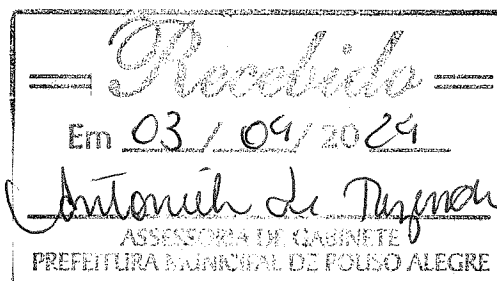 Recebido
Em 03 / 04 / 2024
ASSESSORIA DE GABINETE
PREFEITURA MUNICIPAL DE POUSO ALEGRE